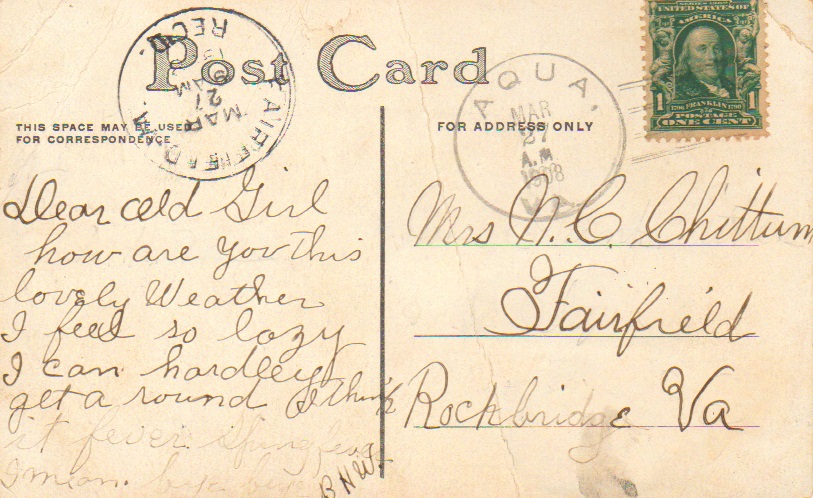 Post Card
THIS SPACE MAY BE USED
FOR CORRESPONDENCE
FOR ADDRESS ONLY
FAIRFIELD, VA.
MAR
27
9 AM
REC'D.
AQUA,
MAR
27
A.M
1908
VA.
SERIES 1902
UNITED STATES OF
AMERICA
1 FRANKLIN 1
POSTAGE
ONE CENT
Dear old Girl
how are you this
lovely Weather
I feel so lazy
I can hardley
get a round I think
it fever Spring fever
I mean. bye bye
BHW.
Mrs N. C. Chittum
Fairfield
Rockbridge Va